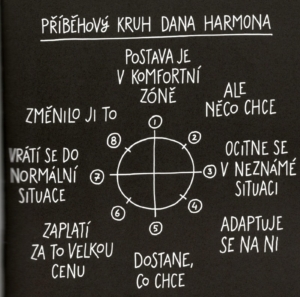 PŘÍBĚHOVÝ KRUH DANA HARMONA
POSTAVA JE
V KOMFORTNÍ
ZÓNĚ
ALE
NĚCO CHCE
OCITNE SE
V NEZNÁMÉ
SITUACI
ADAPTUJE
SE NA NI
DOSTANE,
CO CHCE
ZAPLATÍ
ZA TO VELKOU
CENU
VRÁTÍ SE DO
NORMÁLNÍ
SITUACE
ZMĚNILO JI TO
1
2
3
4
5
6
7
8